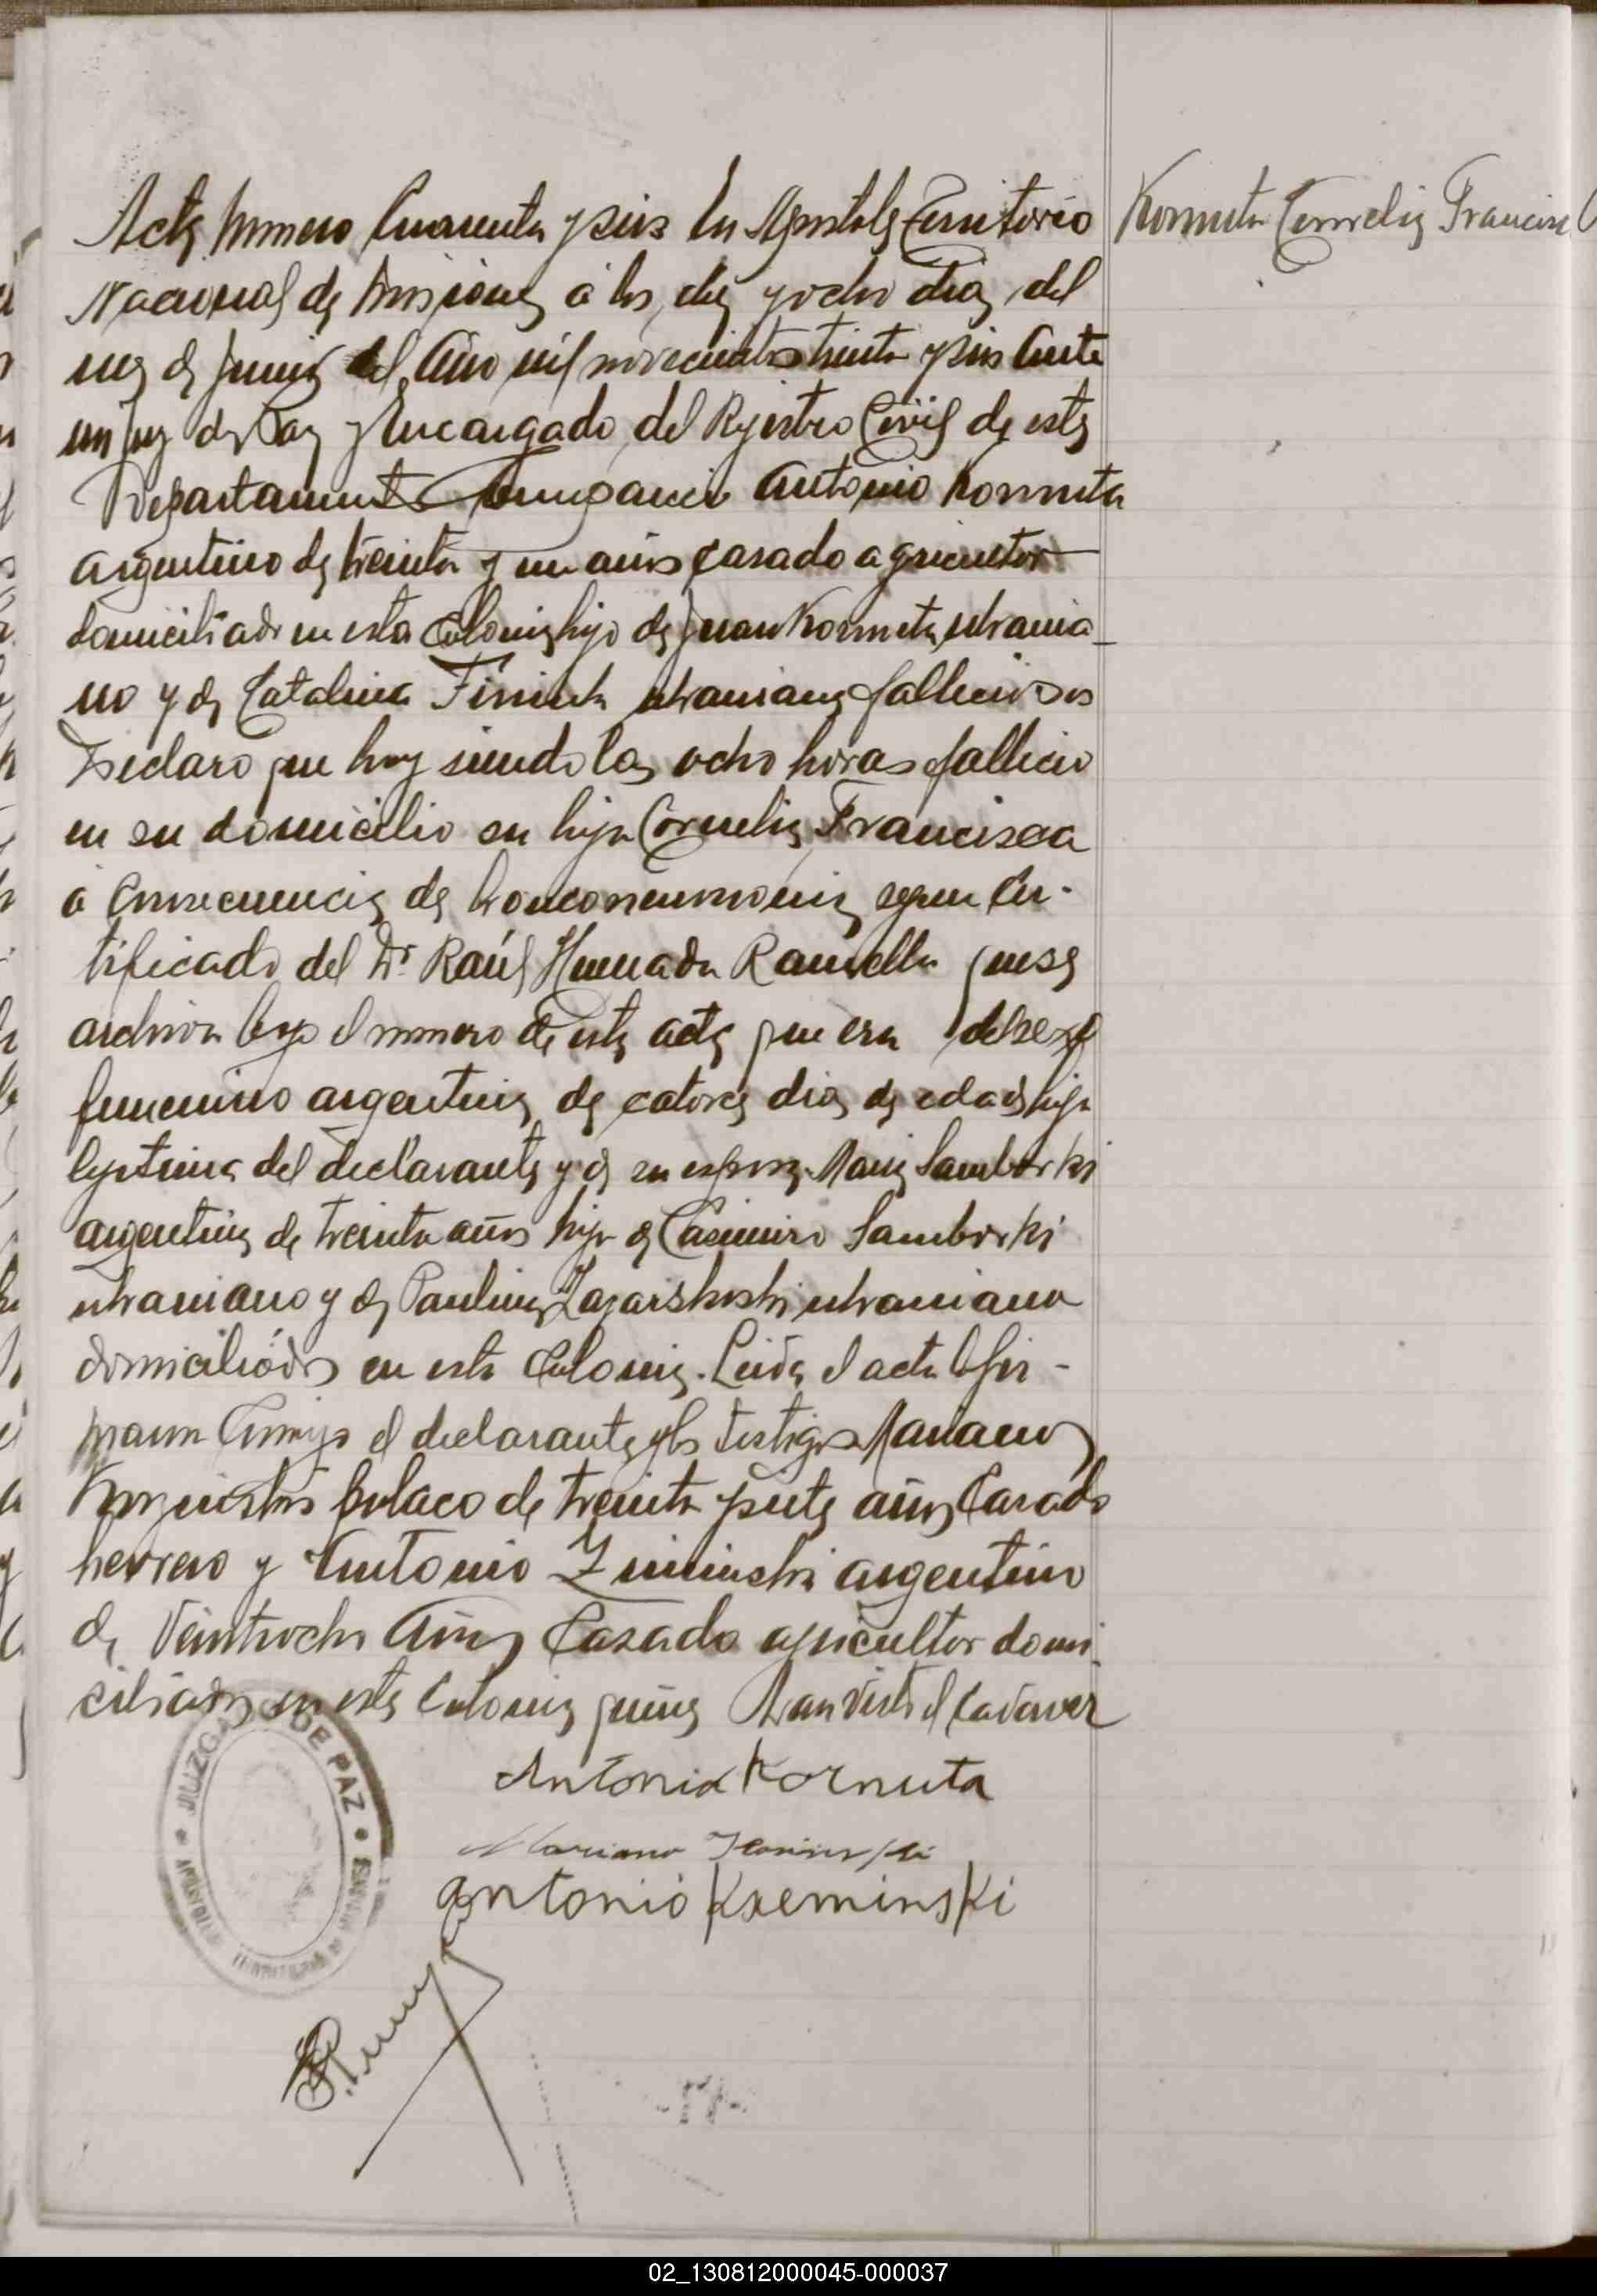 Acta Numero Cuarenta y seis En Apostoles Territorio
Kornuta Cornelia Francisca
Nacional de Misiones á los diez y ocho dias del
mes de Junio del Año mil novecientos treinta y seis Ante
mi Juez de Paz y Encargado del Rejistro Civil de este
Departamento Comparecio Antonio Kornuta
argentino de treinta y un años casado agricultor
domiciliado en esta Colonia hijo de Juan Kornuta ukrania-
no y de Catalina ukraniana fallecidos
Declaro que hoy siendo las ocho horas fallecio
en su domicilio su hija Cornelia Francisca
á Consecuencia de bronconeumonia segun Cer-
tificado del Dr. Raúl Ahumada Ramella que se
archiva bajo el numero de esta acta que era del sexo
femenino argentina de catorce dias de edad hija
lejitima del declarante y de su esposa Maria Samborki
argentina de treinta años hija de Casimiro Samborki
ukraniano y de Paulina ukraniana
domiciliados en esta Colonia. Leida el acta la fir-
maron Conmigo el declarante y los testigos Mariano
polaco de treinta y siete años Casado
herrero y Antonio argentino
de Veintiocho Años Casado agricultor domi-
ciliados en esta Colonia quienes han visto el Cadaver
Antonio Kornuta
Mariano
Antonio Kreminski
JUZGADO DE PAZ
APOSTOLES TERRITORIO DE MISIONES
02_130812000045-000037